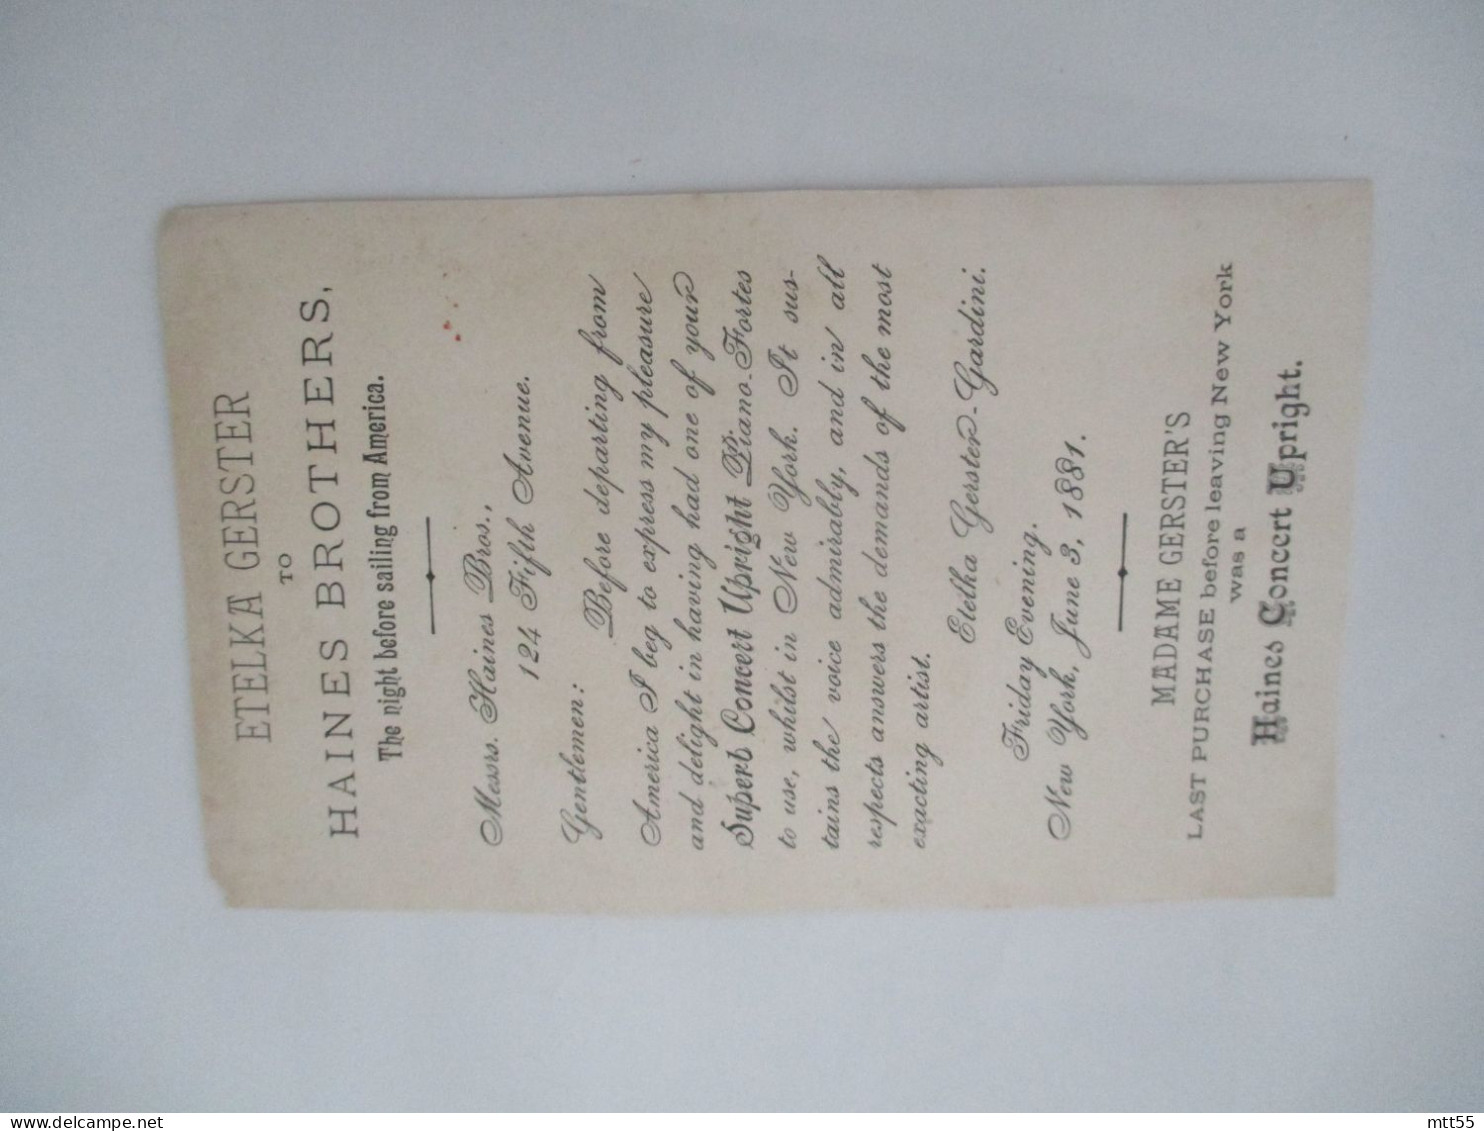 ETELKA GERSTER
TO
HAINES BROTHERS,
The night before sailing from America.
Messrs. Haines Bros.,
124 Fifth Avenue.
Gentlemen:
Before departing from
America I beg to express my pleasure
and delight in having had one of your
Superb Concert Upright Piano-Fortes
to use, whilst in New York. It sus-
tains the voice admirably, and in all
respects answers the demands of the most
exacting artist.
Etelka Gerster-Gardini.
Friday Evening.
New York, June 3, 1881.
MADAME GERSTER'S
LAST PURCHASE before leaving New York
was a
Haines Concert Upright.
delcampe.net
mtt55